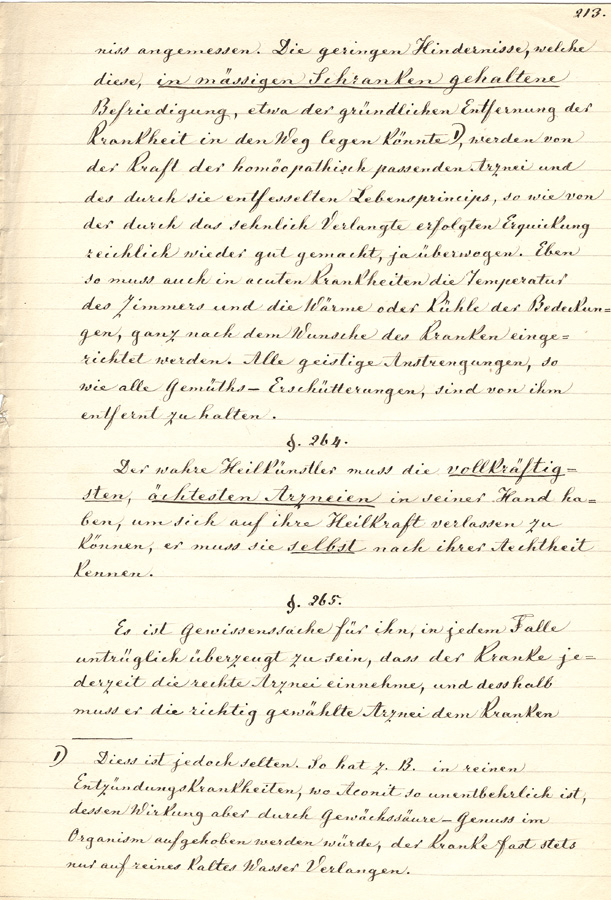 213.
niss angemessen. Die geringen Hindernisse, welche
diese, in mässigen Schranken gehaltene
Befriedigung, etwa der gründlichen Entfernung der
Krankheit in den Weg legen könnte 1), werden von
der Kraft der homöopathisch passenden Arznei und
des durch sie entfesselten Lebensprincips, so wie von
der durch das sehnlich Verlangte erfolgten Erquickung
reichlich wieder gut gemacht, ja überwogen. Eben
so muss auch in acuten Krankheiten die Temperatur
des Zimmers und die Wärme oder Kühle der Bedeckun=
gen, ganz nach dem Wunsche des Kranken einge=
richtet werden. Alle geistige Anstrengungen, so
wie alle Gemüths-Erschütterungen, sind von ihm
entfernt zu halten.
§. 264.
Der wahre Heilkünstler muss die vollkräftig=
sten, ächtesten Arzneien in seiner Hand ha=
ben, um sich auf ihre Heilkraft verlassen zu
können, er muss sie selbst nach ihrer Aechtheit
kennen.
§. 265.
Es ist Gewissenssache für ihn, in jedem Falle
untrüglich überzeugt zu sein, dass der Kranke je=
derzeit die rechte Arznei einnehme, und desshalb
muss er die richtig gewählte Arznei dem Kranken
1) Diess ist jedoch selten. So hat z. B. in reinen
Entzündungskrankheiten, wo Aconit so unentbehrlich ist,
dessen Wirkung aber durch Gewächssäure-Genuss im
Organism aufgehoben werden würde, der Kranke fast stets
nur auf reines kaltes Wasser Verlangen.